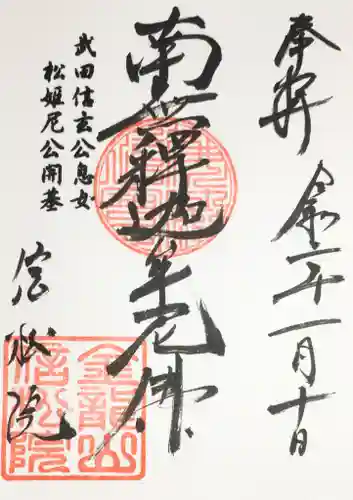 奉拝
令二年一月十日
南無釋迦牟尼佛
武田信玄公息女
松姫尼公開基
信松院
金龍山
信松院